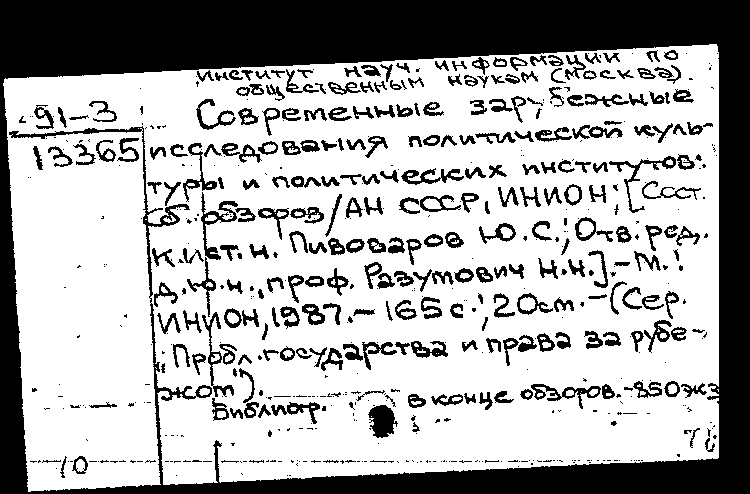 Институт науч. информации по
общественным наукам (Москва).
91-3
13365
Современные зарубежные
исследования политической куль-
туры и политических институтов:
Сб. обзоров/АН СССР, ИНИОН; [Сост.
к.ист.н. Пивоваров Ю.С.; Отв. ред.
д.ю.н., проф. Разумович Н.Н.].-М.:
ИНИОН, 1987.- 165 с.; 20см.-(Сер.
"Пробл. государства и права за рубе-
жом").
Библиогр. в конце обзоров.-850экз
10